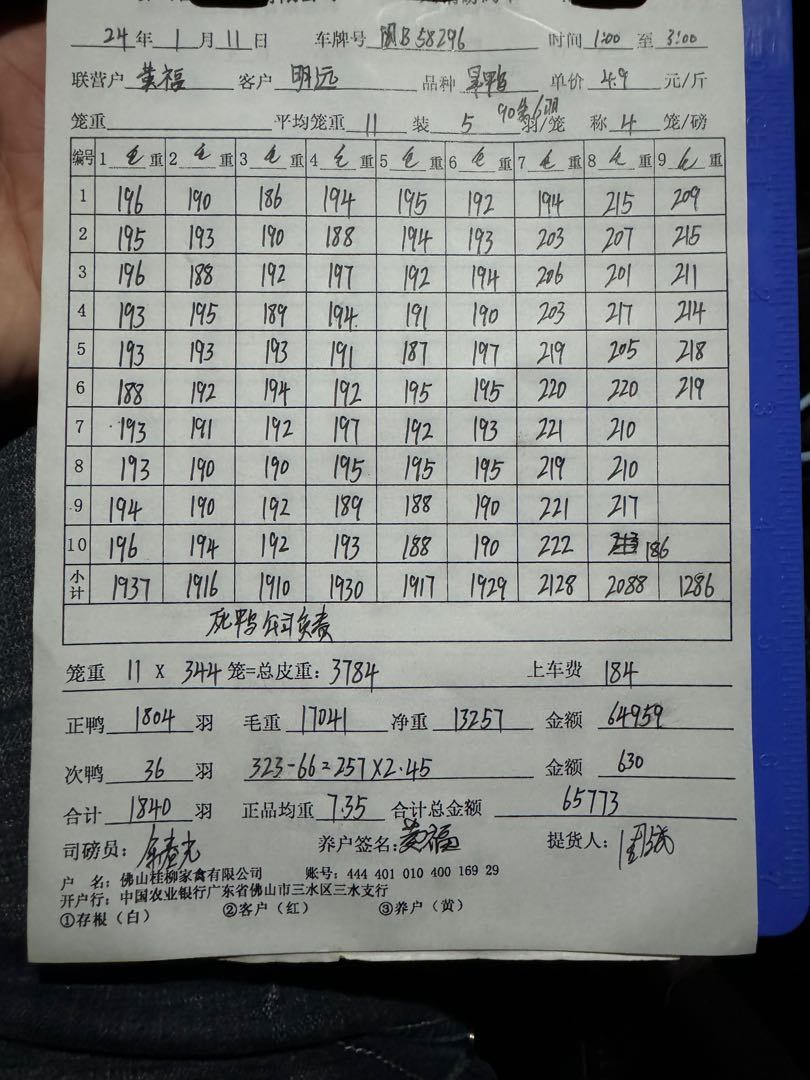 24 年 1 月 11 日 车牌号 闽B58296 时间 1:00 至 3:00
联营户 黄福 客户 明远 品种 黑鸭 单价 4.9 元/斤
90笼6羽
笼重 平均笼重 11 装 5 羽/笼 称 4 笼/磅
编号 1 毛 重 2 毛 重 3 毛 重 4 毛 重 5 毛 重 6 毛 重 7 毛 重 8 毛 重 9 毛 重
1 196 190 186 194 195 192 194 215 209
2 195 193 190 188 194 193 203 207 215
3 196 188 192 197 192 194 206 201 211
4 193 195 189 194 191 190 203 217 214
5 193 193 193 191 187 197 219 205 218
6 188 192 194 192 195 195 220 220 219
7 193 191 192 197 192 193 221 210
8 193 190 190 195 195 195 219 210
9 194 190 192 189 188 190 221 217
10 196 194 192 193 188 190 222 186
小计 1937 1916 1910 1930 1917 1929 2128 2088 1286
死鸭公司负责
笼重 11 X 344 笼=总皮重: 3784 上车费 184
正鸭 1804 羽 毛重 17041 净重 13257 金额 64959
次鸭 36 羽 323-66=257X2.45 金额 630
合计 1840 羽 正品均重 7.35 合计总金额 65773
司磅员: 养户签名: 黄福 提货人:
户 名: 佛山桂柳家禽有限公司 账号: 444 401 010 400 169 29
开户行: 中国农业银行广东省佛山市三水区三水支行
①存根(白) ②客户(红) ③养户(黄)